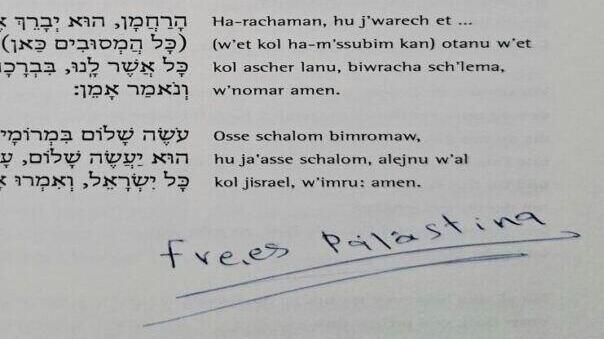 הָרַחֲמָן, הוּא יְבָרֵךְ
(כָּל הַמְסוּבִּים כַּאן)
כָּל אֲשֶׁר לָנוּ,
וְנֹאמַר אָמֵן:
עֹשֶׂה שָׁלוֹם
הוּא יַעֲשֶׂה שָׁלוֹם,
כָּל יִשְׂרָאֵל, וְאִמְרוּ
Ha-rachaman, hu j’warech et ...
(w’et kol ha-m’ssubim kan) otanu w’et
kol ascher lanu, biwracha sch’lema,
w’nomar amen.
Osse schalom bimromaw,
hu ja’asse schalom, alejnu w’al
kol jisrael, w’imru: amen.
Freies Palästina